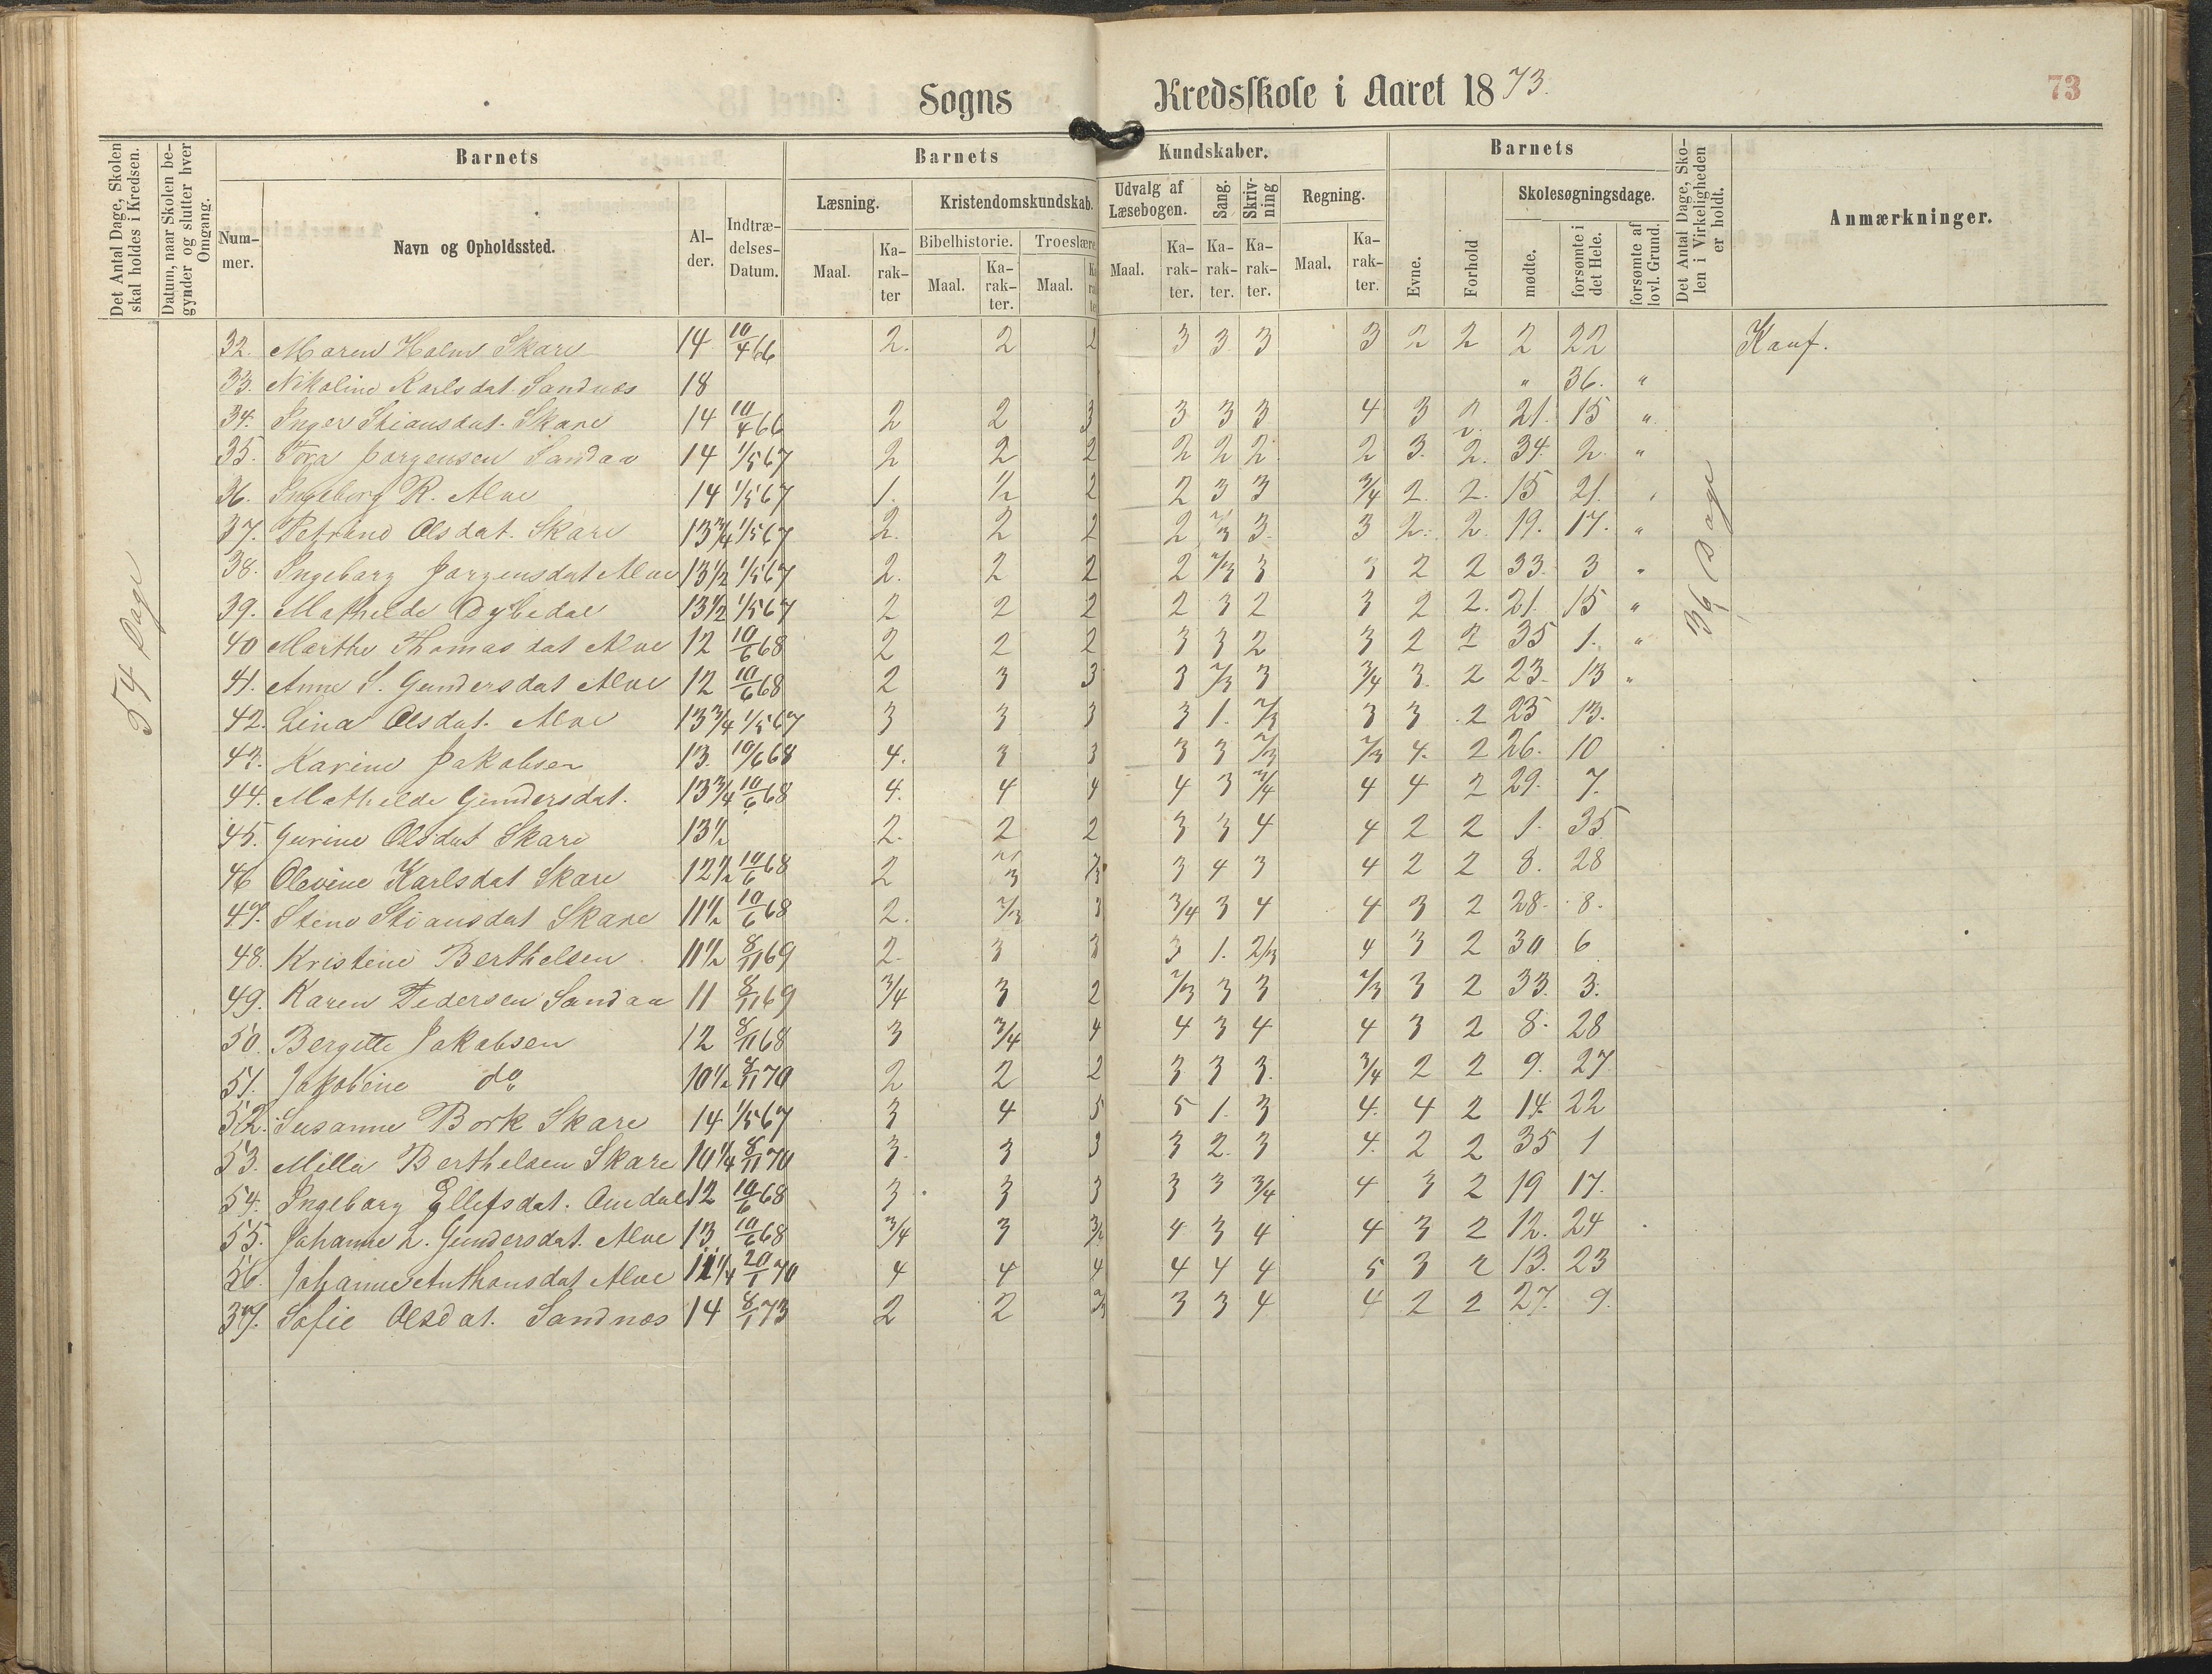 Sogns Kredsskole i Aaret 1873.
73
Det Antal Dage, Skolen skal holdes i Kredsen.
Datum, naar Skolen begynder og slutter hver Omgang.
Barnets
Nummer.
Navn og Opholdssted.
Alder.
Indtrædelses-Datum.
Barnets Kundskaber.
Læsning.
Maal.
Karakter
Kristendomskundskab.
Bibelhistorie.
Maal.
Karakter.
Troeslære
Maal.
Udvalg af Læsebogen.
Maal.
Karakter.
Sang.
Karakter.
Skrivning
Karakter.
Regning.
Maal.
Karakter.
Barnets
Evne.
Forhold
Skolesøgningsdage.
mødte.
forsømte i det Hele.
forsømte af lovl. Grund.
Det Antal Dage, Skolen i Virkeligheden er holdt.
Anmærkninger.
54 Dage
36 Dage
32. Maren Holm Skare 14 10/4 66 2. 2 2 3 3 3 3 2 2 2 22 Konf.
33. Nikoline Karlsdat. Sandnæs 18 " 36. "
34. Inger Stiansdat. Skare 14 10/4 66 2 2 3 3 3 3 4 3 2. 21. 15 "
35. Tora Jørgensen Sandaa 14 1/5 67 2 2 2 2 2 2. 2 3. 2. 34. 2. "
36. Ingeborg R. Alve 14 1/5 67 1. 1/2 2 2 3 3 3/4 2. 2. 15 21. "
37. Petrine Olsdat. Skare 13 3/4 1/5 67 2. 2 2 2 2/3 3. 3 2. 2. 19. 17. "
38. Ingeborg Jørgensdat Alve 13 1/2 1/5 67 2. 2 2 2 2/3 3 3 2 2 33. 3 "
39. Mathilde Dybedal 13 1/2 1/5 67 2 2 2 2 3 2 3 2 2. 21. 15 "
40 Marthe Thomasdat Alve 12 10/6 68 2 2 2 3 3 2 3 2 2 35 1. "
41. Anne S. Gundersdat Alve 12 10/6 68 2 3 3 3 2/3 3 3/4 3. 2 23. 13 "
42. Lina Olsdat. Alve 13 3/4 1/5 67 3 3 3 3 1. 2/3 3 3 2 23 13.
43. Karine Jakobsen 13. 10/6 68 4. 3 3 3 3 2/3 2/3 4. 2 26. 10
44. Mathilde Gundersdat. 13 3/4 10/6 68 4. 4 4 4 3 3/4 4 4 2 29. 7.
45. Gurine Olsdat Skare 13 1/2 2. 2 2 3 3 4 4 2 2 1. 35
46 Olevine Karlsdat Skare 12 1/2 10/6 68 2 2/3 2/3 3 4 3 4 2 2 8. 28
47. Stine Stiansdat Skare 11 1/2 10/6 68 2. 2/3 3 3/4 3 4 4 3 2 28. 8.
48. Kristine Berthelsen 11 1/2 8/11 69 2. 3 3 3 1. 2/3 4 3 2 30 6
49. Karen Pedersen Sandaa 11 8/11 69 3/4 3 2 2/3 3 3 2/3 3 2 33. 3.
50. Bergitte Jakobsen 12 8/11 68 3 3/4 4 4 3 4 4 3 2 8. 28
51. Jakobine do 10 1/2 8/11 70 2 2 2 3 3 3. 3/4 2 2 9. 27.
52. Susanne Bork Skare 14 1/5 67 3 4 5 5 1. 3 4. 4 2 14. 22
53. Milla Berthelsen Skare 10 1/4 8/11 70 3. 3 3 3 2. 3 4. 2 2 35 1
54. Ingeborg Ellefsdat. Omdal 12 10/6 68 3 3 3 3 3 3/4 4 3 2 19 17.
55. Johanne L. Gundersdat. Alve 13 10/6 68 3/4 3 4 3 4 4 3 2 12. 24
56. Johanne Anthonsdat Alve 11 1/4 20/1 70 4 4 4 4 4 4 5 3 2 13. 23
37. Sofie Olsdat. Sandnæs 14 8/1 73 2 2 2/3 3 3 4 4 2 2 27. 9.